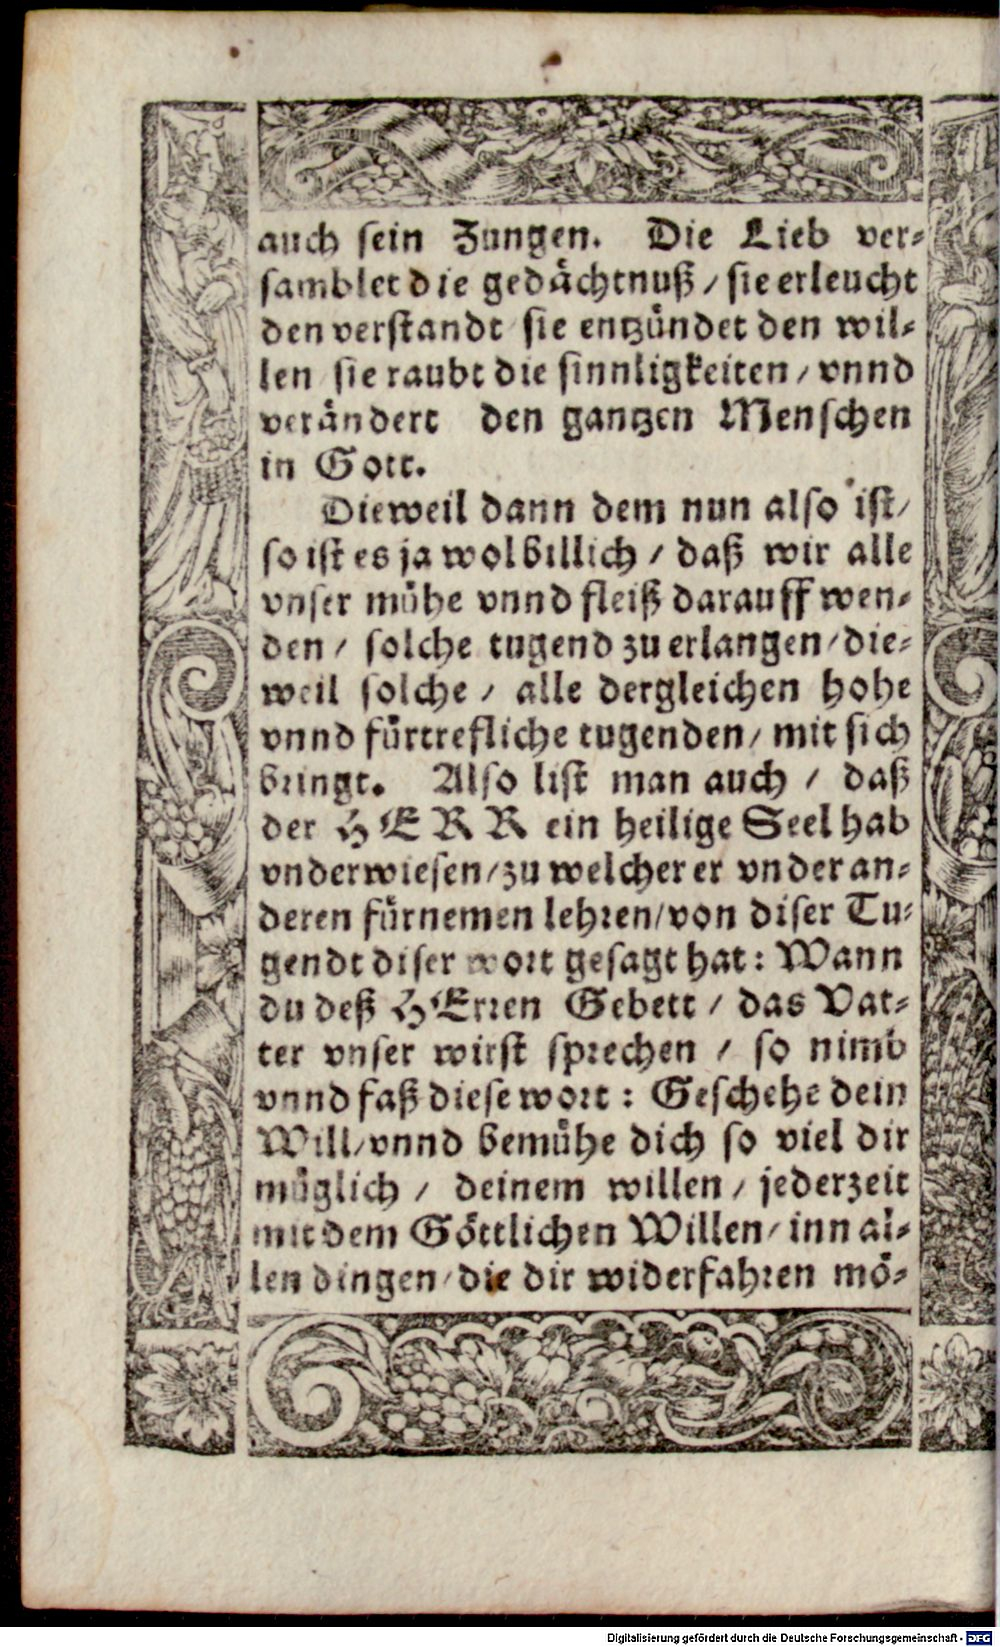 auch sein Zungen. Die Lieb ver-
samblet die gedächtnuß / sie erleucht
den verstandt / sie entzündet den wil-
len / sie raubt die sinnligkeiten / vnnd
verändert den gantzen Menschen
in Gott.
Dieweil dann dem nun also ist /
so ist es ja wol billich / daß wir alle
vnser mühe vnnd fleiß darauff wen-
den / solche tugend zu erlangen / die-
weil solche / alle dergleichen hohe
vnnd fürtrefliche tugenden / mit sich
bringt. Also list man auch / daß
der HERR ein heilige Seel hab
vnderwiesen / zu welcher er vnder an-
deren fürnemen lehren / von diser Tu-
gendt diser wort gesagt hat : Wann
du deß HErren Gebett / das Vat-
ter vnser wirst sprechen / so nimb
vnnd faß diese wort : Geschehe dein
Will / vnnd bemühe dich so viel dir
müglich / deinem willen / jederzeit
mit dem Göttlichen Willen / inn al-
len dingen / die dir widerfahren mö-
Digitalisierung gefördert durch die Deutsche Forschungsgemeinschaft - DFG